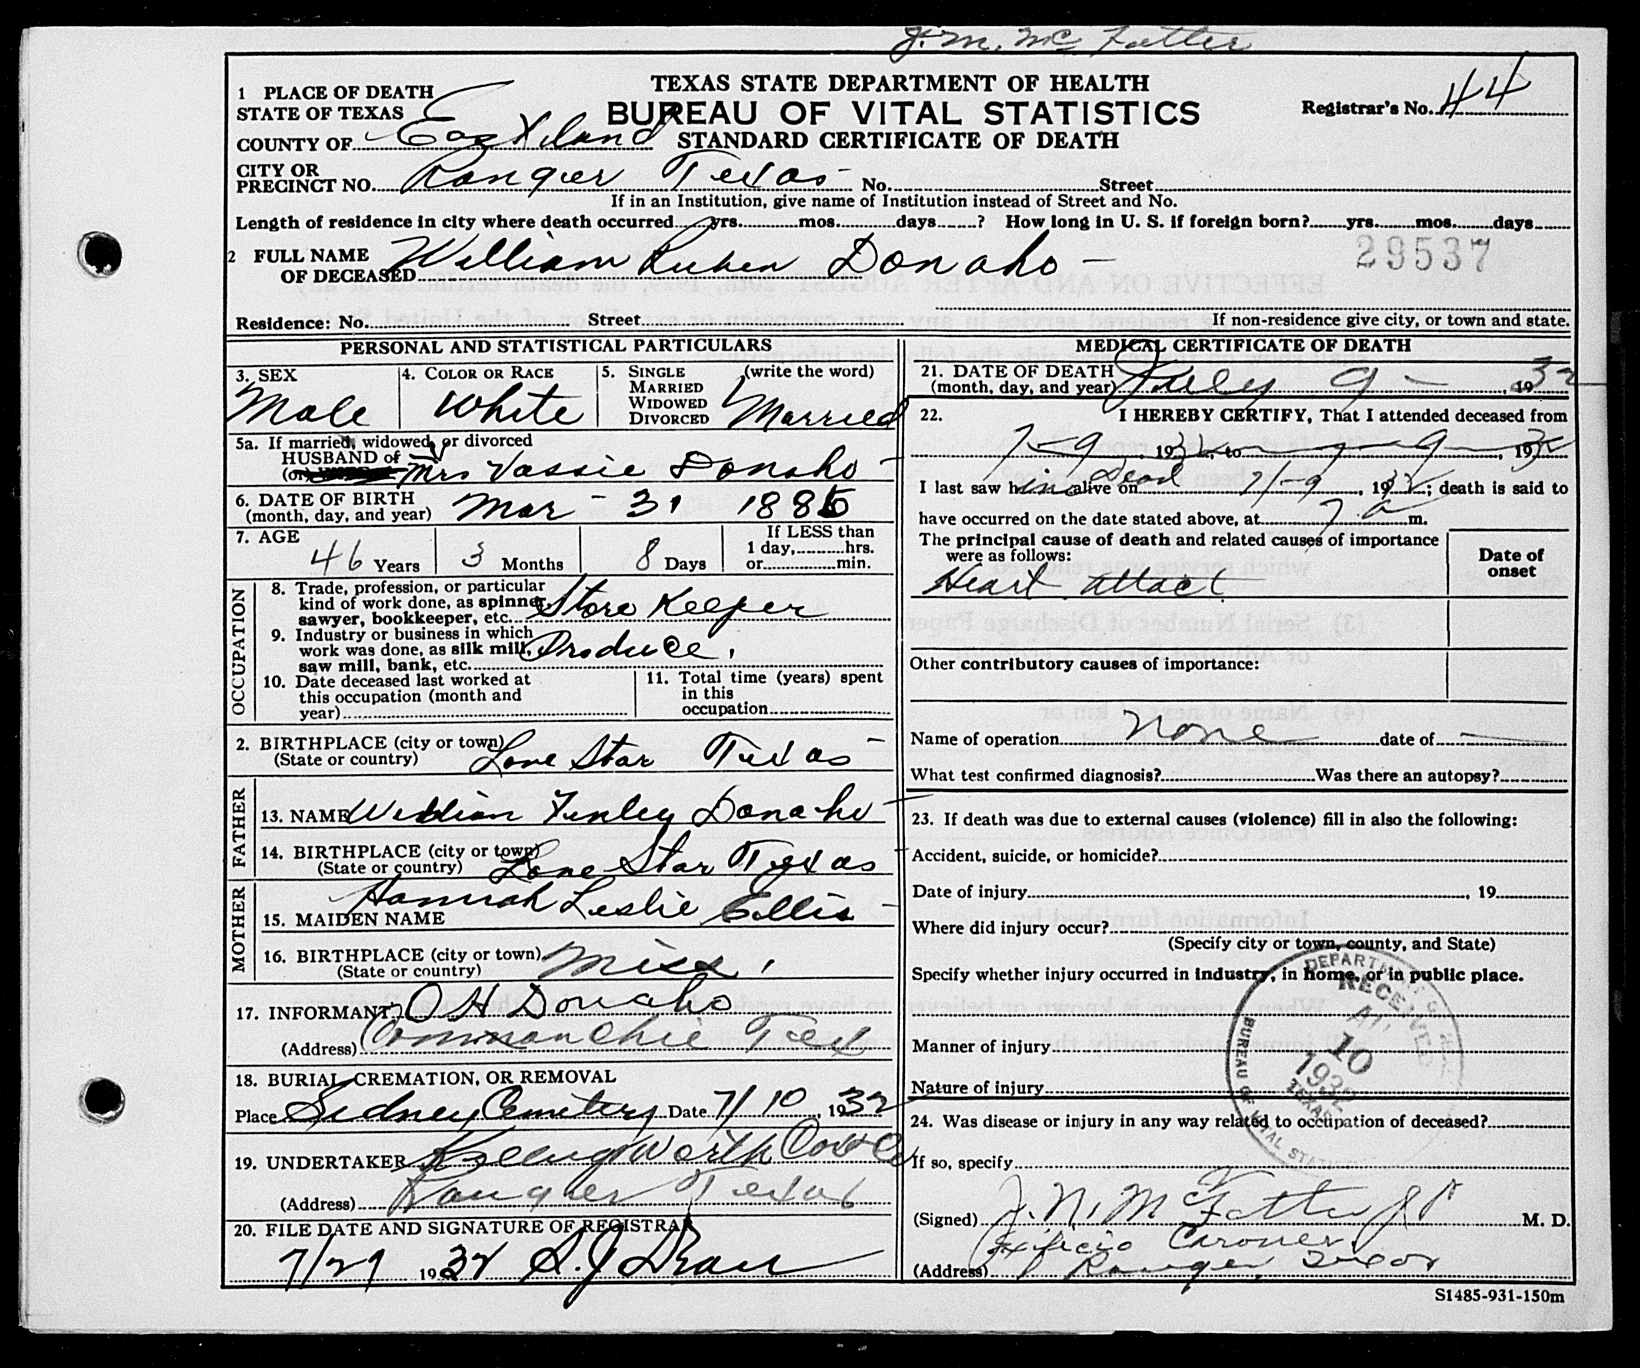 J. M. McFatter
TEXAS STATE DEPARTMENT OF HEALTH
BUREAU OF VITAL STATISTICS
STANDARD CERTIFICATE OF DEATH
Registrar's No. 44
1 PLACE OF DEATH
STATE OF TEXAS
COUNTY OF Eastland
CITY OR
PRECINCT NO. Ranger Texas No. Street
If in an Institution, give name of Institution instead of Street and No.
Length of residence in city where death occurred yrs. mos. days ? How long in U. S. if foreign born? yrs. mos. days
2 FULL NAME
OF DECEASED William Ruben Donaho
29537
Residence: No. Street If non-residence give city, or town and state.
PERSONAL AND STATISTICAL PARTICULARS
3. SEX Male
4. COLOR OR RACE White
5. SINGLE MARRIED WIDOWED DIVORCED (write the word) Married
5a. If married, widowed, or divorced
HUSBAND of
(or Mrs Vassie Donaho
6. DATE OF BIRTH
(month, day, and year) Mar - 31 1886
7. AGE 46 Years 3 Months 8 Days
If LESS than
1 day, hrs.
or min.
OCCUPATION
8. Trade, profession, or particular
kind of work done, as spinner,
sawyer, bookkeeper, etc. Store Keeper
9. Industry or business in which
work was done, as silk mill,
saw mill, bank, etc. Produce.
10. Date deceased last worked at
this occupation (month and
year)
11. Total time (years) spent
in this
occupation
2. BIRTHPLACE (city or town)
(State or country) Lone Star Texas
FATHER
13. NAME William Finley Donaho
14. BIRTHPLACE (city or town)
(State or country) Lone Star Texas
MOTHER
Hannah Leslie Ellis
15. MAIDEN NAME
16. BIRTHPLACE (city or town)
(State or country) Miss.
17. INFORMANT O H Donaho
(Address) Commanchie Tex
18. BURIAL, CREMATION, OR REMOVAL
Place Sidney Cemetery Date 7/10, 1932
19. UNDERTAKER Killingsworth Cox & Co
(Address) Ranger Texas
20. FILE DATE AND SIGNATURE OF REGISTRAR
7/29 1932
MEDICAL CERTIFICATE OF DEATH
21. DATE OF DEATH
(month, day, and year) July 9 - , 1932
22. I HEREBY CERTIFY, That I attended deceased from
7-9, 1932, to 7-9, 1932
I last saw him alive on Dead 7/-9, 1932; death is said to
have occurred on the date stated above, at 7 a m.
The principal cause of death and related causes of importance
were as follows:
Date of
onset
Heart attact
Other contributory causes of importance:
Name of operation None date of
What test confirmed diagnosis? Was there an autopsy?
23. If death was due to external causes (violence) fill in also the following:
Accident, suicide, or homicide?
Date of injury , 19
Where did injury occur?
(Specify city or town, county, and State)
Specify whether injury occurred in industry, in home, or in public place.
Manner of injury
Nature of injury
DEPARTMENT OF HEALTH
RECEIVED
10
1932
TEXAS
BUREAU OF VITAL STATISTICS
24. Was disease or injury in any way related to occupation of deceased?
If so, specify
(Signed) J. N. McFatter J P M. D.
Exificio Coroner
(Address) Ranger, Texas
S1485-931-150m